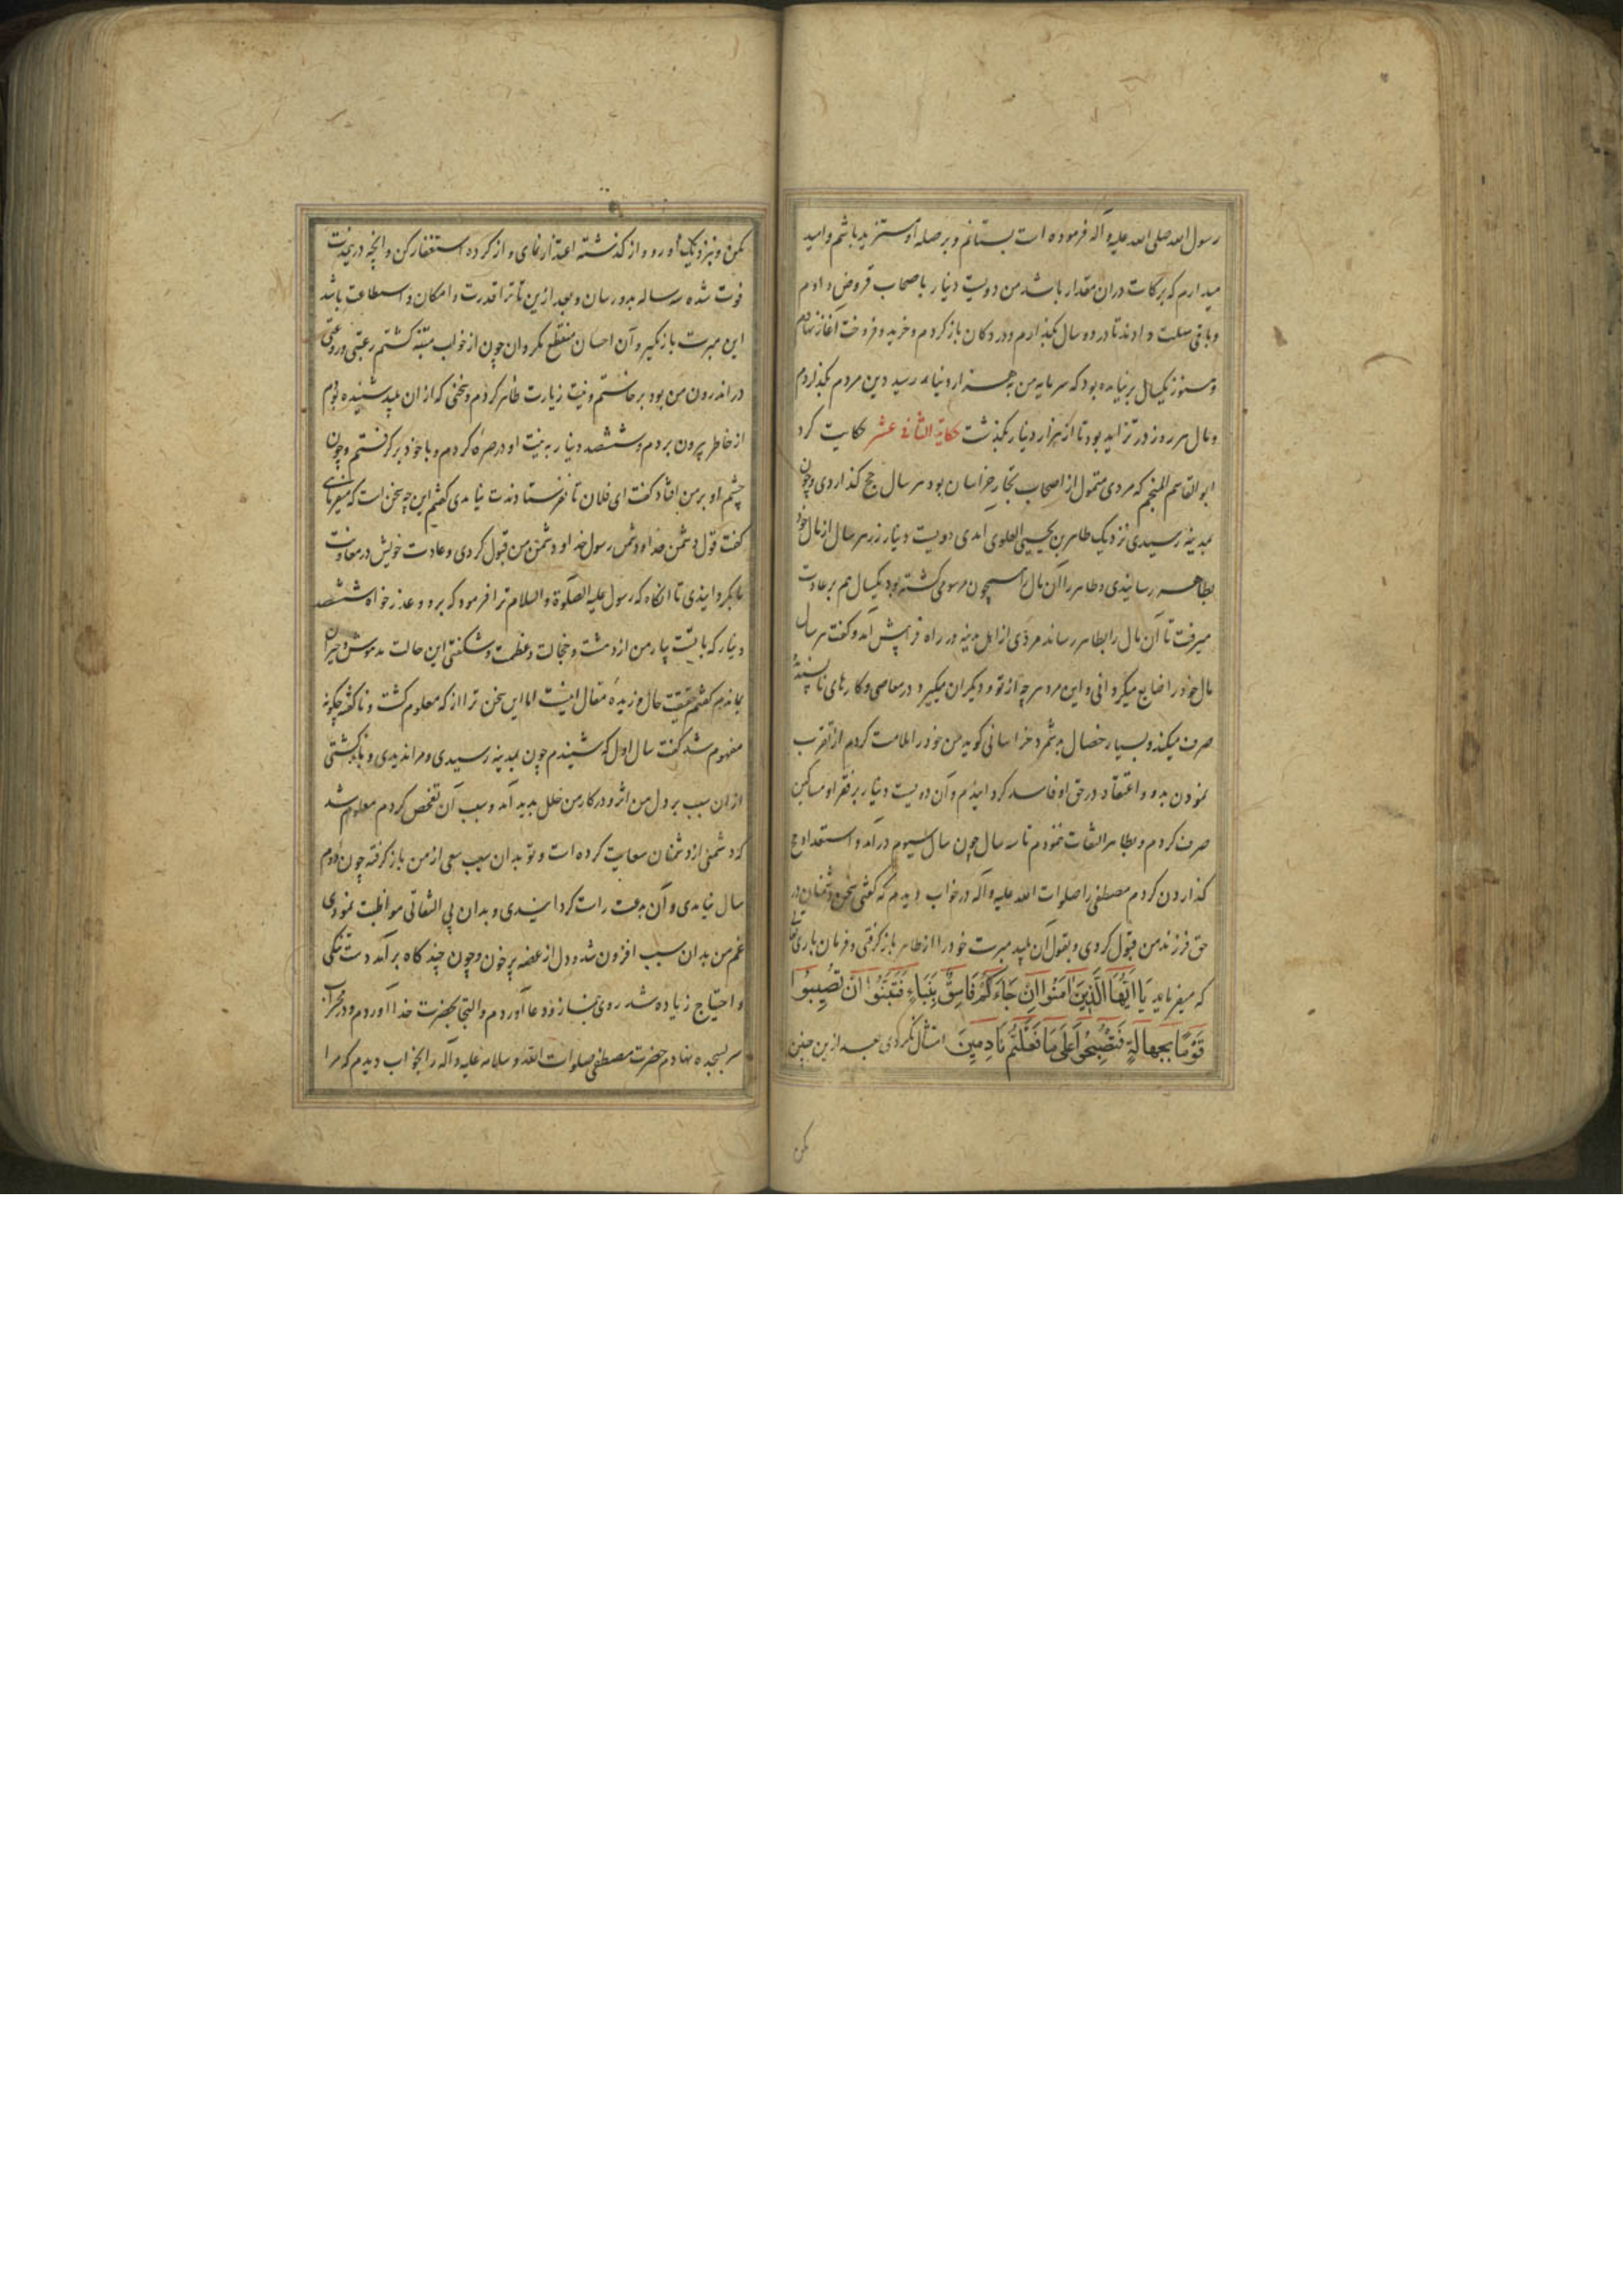 رسول الله صلی الله علیه و آله فرموده است بستانم و بر صله او مستزید باشم و امید
میدارم که برکات دران مقدار باشد من دویست دینار باصحاب قروض دادم
و باقی مهلت دادند تا در دو سال بگذارم و در دکان باز کردم و خرید و فروخت آغاز نهادم
و هنوز یکسال برنیامده بود که سرمایه من بهزار دینار رسید دین مردم بگذاردم
و مال هر روز در تزاید بود تا از هزار دینار بگذشت حکایة الثانی عشر حکایت کرد
ابو القاسم المنجم که مردی متمول از اصحاب تجار خراسان بود هر سال حج گذاردی و چون
بمدینه رسیدی نزدیک طاهر بن یحیی العلوی امدی دویست دینار زر هر سال از مال خود
بطاهر رسانیدی و طاهر را آن مال همچون مرسومی گشته بود یکسال هم بر عادت
میرفت تا آن مال را بطاهر رساند مردی از اهل مدینه در راه فراپیش آمد و گفت هر سال
مال خود را ضایع میگردانی و این مرد هر چه از تو و دیگران میگیرد در معاصی و کارهای ناپسندیده
صرف میکند و بسیار خصال بد شمرد خراسانی گوید من خود را ملامت کردم از تقرب
نمودن بدو و اعتقاد در حق او فاسد گردانیدم و آن دویست دینار بر فقرا و مساکین
صرف کردم و بطاهر التفات ننمودم تا سه سال چون سال سیوم در آمد و استعداد حج
گذاردن کردم مصطفی را صلوات الله علیه و آله در خواب دیدم که گفتی سخن دشمنان در
حق فرزند من قبول کردی و بقول آن پلید مبرت خود را از طاهر بازگرفتی و فرمان باری تعالی
که میفرماید یَا اَیُّهَا الَّذِینَ اٰمَنُوا اِنْ جَاءَکُمْ فَاسِقٌ بِنَبَاءٍ فَتَبَیَّنُوا اَنْ تُصِیبُوا
قَوْمًا بِجَهَالَةٍ فَتُصْبِحُوا عَلٰی مَا فَعَلْتُمْ نَادِمِینَ امتثال نکردی بعد ازین چنین
مکن
مکن و بنزدیک او رو و از گذشته اعتذار نمای و از کرده استغفار کن و آنچه درین مدت
فوت شده سه ساله بدو رسان و بعد ازین تا ترا قدرت و امکان و استطاعت باشد
این مبرت بازمگیر و آن احسان منقطع مگردان چون از خواب متنبه گشتم رعبتی و روعتی
در اندرون من بود برخاستم و نیت زیارت طاهر کردم و سخنی که از ان پلید شنیده بودم
از خاطر بیرون بردم و ششصد دینار به نیت او در صره کردم و با خود برگرفتم و چون
چشم او بر من افتاد گفت ای فلان تا نفرستادندت نیامدی گفتم این چه سخن است که میفرمائی
گفت قول دشمن خدا و دشمن رسول خدا و دشمن من قبول کردی و عادت خویش در معاونت
ما بگردانیدی تا انگاه که رسول علیه الصلوة و السلام ترا فرمود که برو و عذر خواه ششصد
دینار که با تست بیار من از دهشت و خجالت و عظمت و شگفتی این حالت مدهوش و حیران
بماندم گفتم حقیقت حال و زبده مقال اینست اما این سخن ترا از که معلوم گشت و ناگفته چگونه
مفهوم شد گفت سال اول که شنیدم چون بمدینه رسیدی و مرا ندیدی و بازگشتی
از ان سبب بر دل من اثر و در کار من خلل پدید آمد و سبب آن تفحص کردم معلوم شد
که دشمنی از دشمنان سعایت کرده است و تو بدان سبب سعی از من بازگرفته چون دوم
سال نیامدی و آن بدعت راست گردانیدی و بدان بی التفاتی مواظبت نمودی
غم من بدان سبب افزون شد و دل از غصه پر خون و چون چند گاه برآمد دست تنگی
و احتیاج زیاده شد روی بنماز و دعا آوردم و التجا بحضرت خدا آوردم و در محراب
سر بسجده نهادم حضرت مصطفی صلوات الله و سلامه علیه و آله را بخواب دیدم که مرا